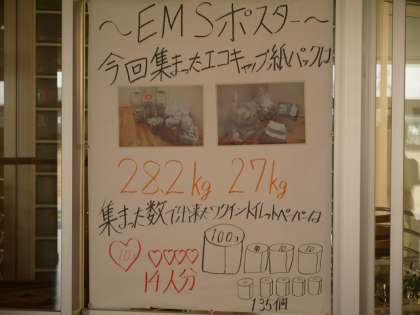 ～EMSポスター～
今回集まったエコキャップ紙パックは
28.2kg 27kg
集まった数で出来たワクチントイレットペーパーは
10人 100コ
14人分
135個